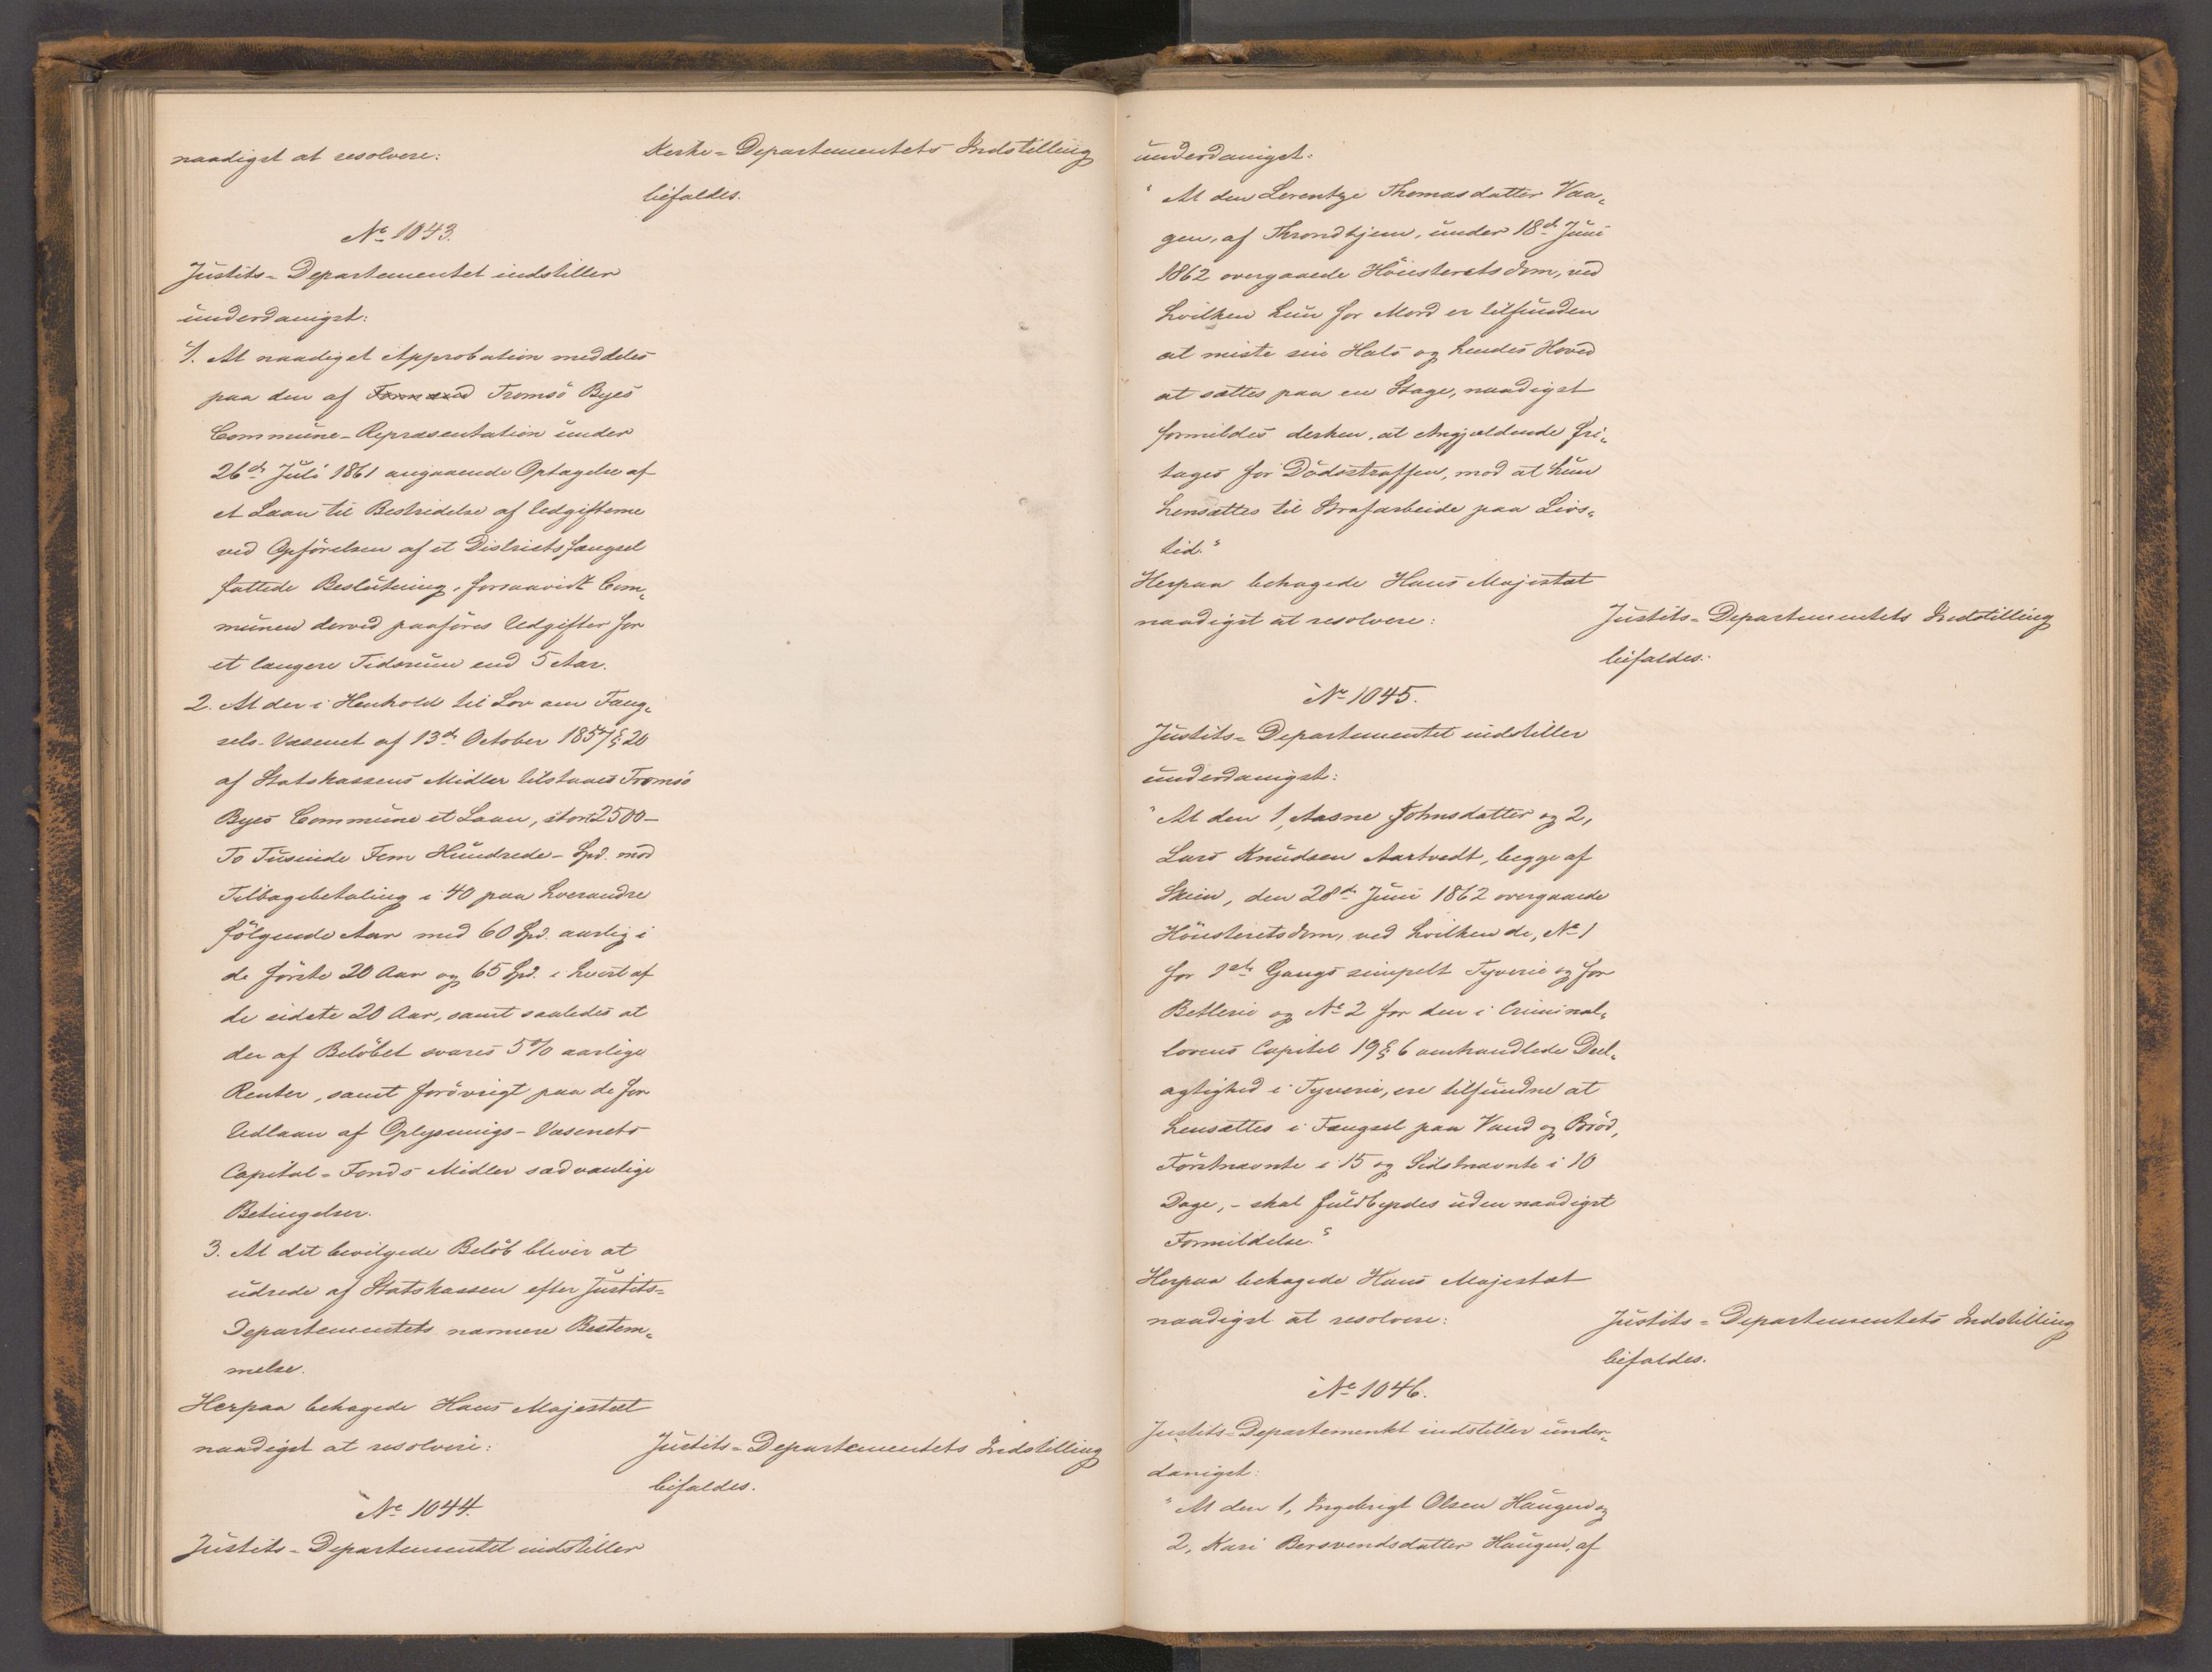 naadigst at resolvere:
Kirke-Departementets Indstilling
bifaldes.
No 1043.
Justits-Departementet indstiller
underdanigst:
"1. At naadigst Approbation meddeles
paa den af Formænd Tromsö Byes
Commune-Repræsentation under
26de Juli 1861 angaaende Optagelse af
et Laan til Bestridelse af Udgifterne
ved Opförelsen af et Districtsfængsel
fattede Beslutning, forsaavidt Com-
munen derved paaföres Udgifter for
et længere Tidsrum end 5 Aar.
2. At der i Henhold til Lov om Fæng-
sels-Væsenet af 13de October 1857 § 20
af Statskassens Midler tilstaaes Tromsö
Byes Commune et Laan, stort 2500 -
To Tusinde Fem Hundrede - Spd. mod
Tilbagebetaling i 40 paa hverandre
fölgende Aar med 60 Spd. aarlig i
de förste 20 Aar og 65 Spd. i hvert af
de sidste 20 Aar, samt saaledes at
der af Belöbet svares 5 % aarlige
Renter, samt forövrigt paa de for
Udlaan af Oplysnings-Væsenets
Capital-Fonds Midler sædvanlige
Betingelser.
3. At det bevilgede Belöb bliver at
udrede af Statskassen efter Justits-
Departementets nærmere Bestem-
melse.
Herpaa behagede Hans Majestæt
naadigst at resolvere:
Justits-Departementets Indstilling
bifaldes.
No 1044.
Justits-Departementet indstiller
underdanigst:
"At den Lorentze Thomasdatter Vaa-
gen, af Throndhjem, under 18de Juni
1862 overgaaede Höiesteretsdom, ved
hvilken hun for Mord er tilfunden
at miste sin Hals og hendes Hoved
at sættes paa en Stage, naadigst
formildes derhen, at Angjældende fri-
tages for Dödsstraffen, mod at hun
hensættes til Strafarbeide paa Livs-
tid."
Herpaa behagede Hans Majestæt
naadigst at resolvere:
Justits-Departementets Indstilling
bifaldes.
No 1045.
Justits-Departementet indstiller
underdanigst:
"At den 1, Aasne Johnsdatter og 2,
Lars Knudsen Aartvedt, begge af
Skien, den 28de Juni 1862 overgaaede
Höiesteretsdom, ved hvilken de, No 1
for 1ste Gangs simpelt Tyverie og for
Betlerie og No 2 for den i Criminal-
lovens Capitel 19 § 6 omhandlede Deel-
agtighed i Tyverie, ere tilfundne at
hensættes i Fængsel paa Vand og Bröd,
Förstnævnte i 15 og Sidstnævnte i 10
Dage, - skal fuldbyrdes uden naadigst
Formildelse."
Herpaa behagede Hans Majestæt
naadigst at resolvere:
Justits-Departementets Indstilling
bifaldes.
No 1046.
Justits-Departementet indstiller under-
danigst:
"At den 1, Ingebrigt Olsen Haugen og
2, Kari Bersvendsdatter Haugen, af